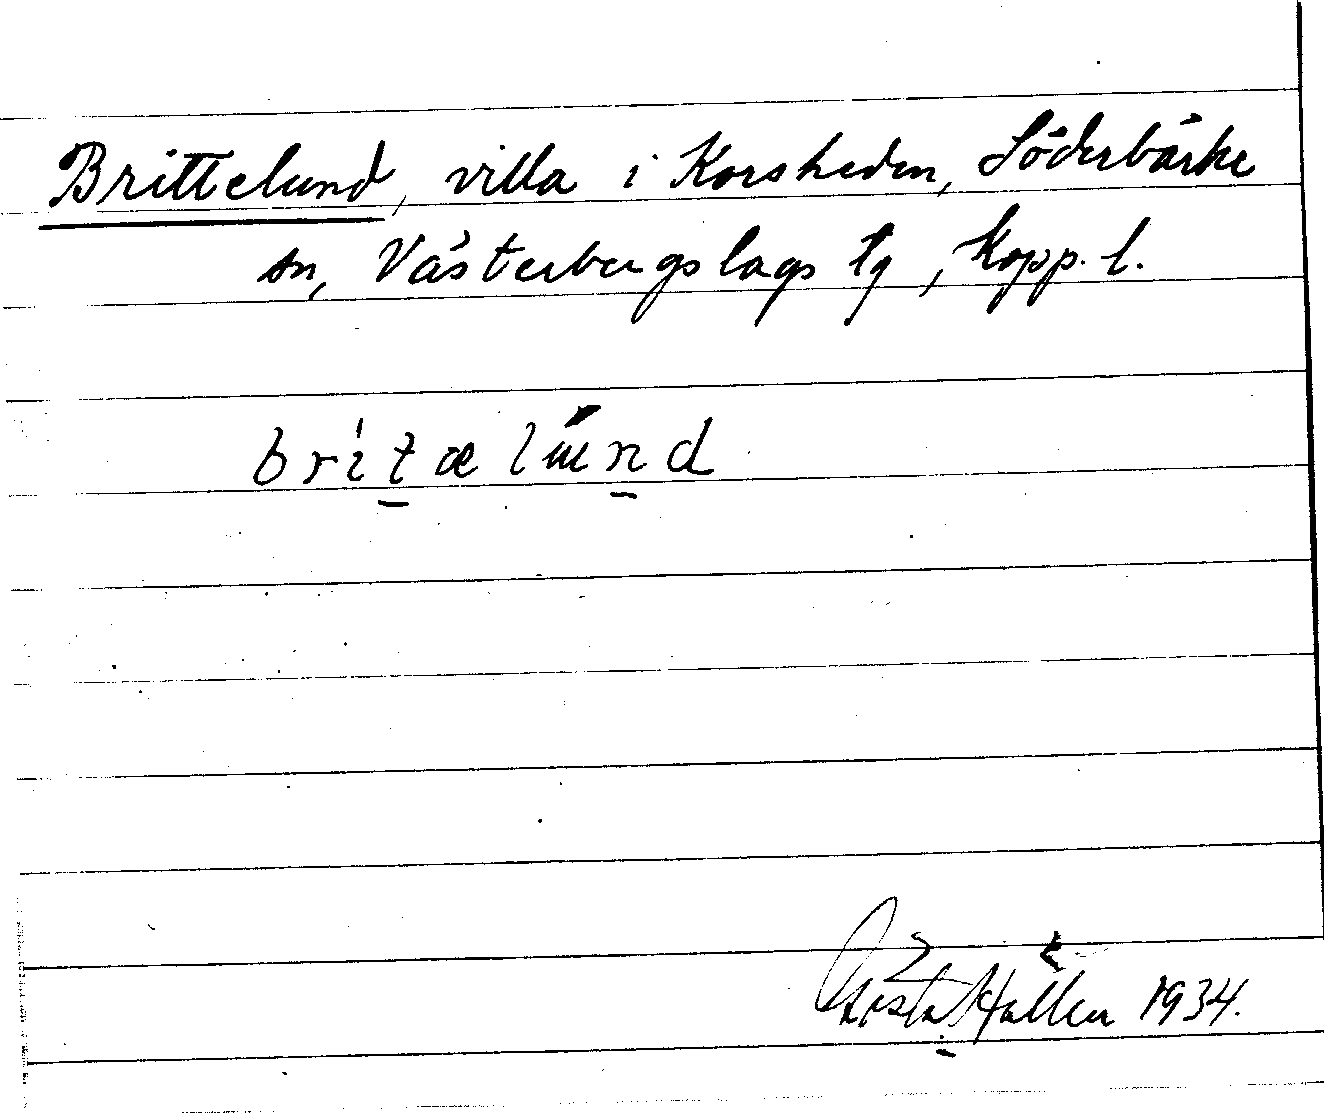 Brittelund, villa i Korsheden, Söderbärke
sn, Västerbergslags tg, Kopp. l.
britælund
Gösta Hallén 1934.